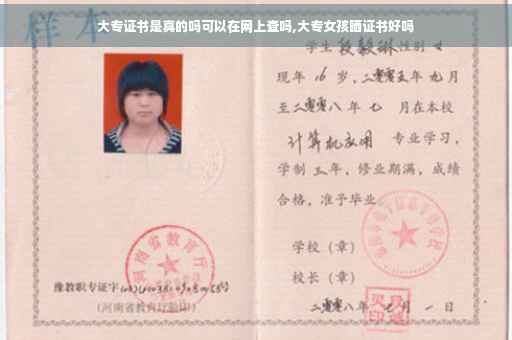 大专证书是真的吗可以在网上查吗,大专女孩晒证书好吗
样本
学生 段毅琳 性别 女
现年 16 岁,二零零五年 九月
至二零零八 年 七 月在本校
计算机应用 专业学习,
学制 三 年,修业期满,成绩
合格,准予毕业
学校(章)
校长(章)
二零零八年 七 月 一 日
河南省教育厅
豫教职专证字
(河南省教育厅验印)